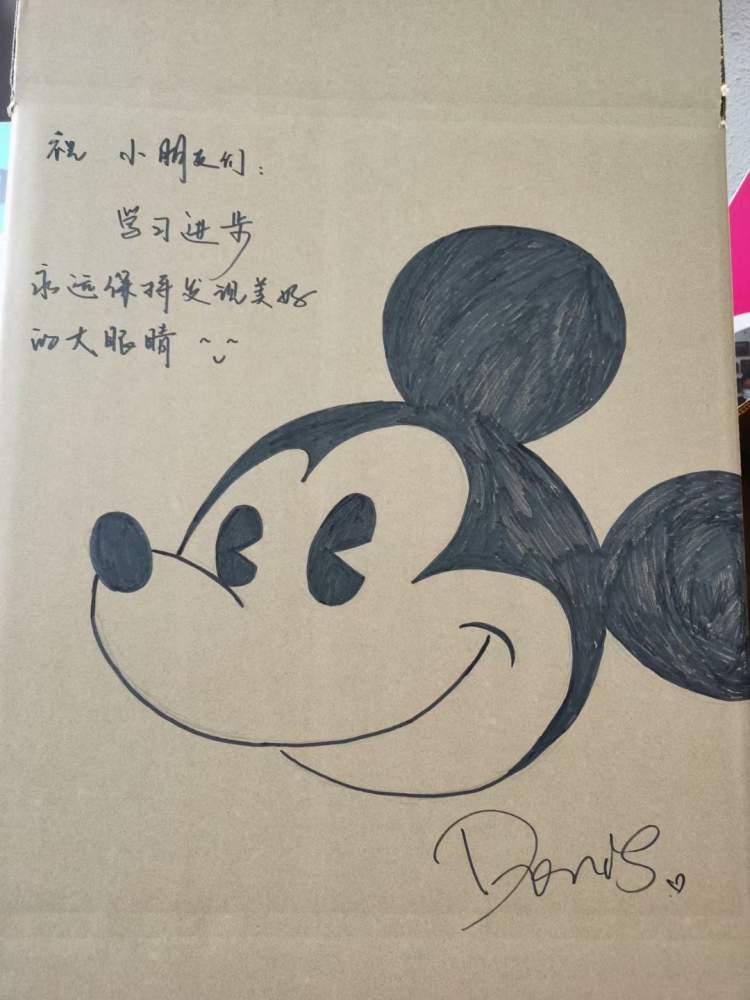 祝 小朋友们：
学习进步
永远保持发现美好
的大眼睛 ~ ~